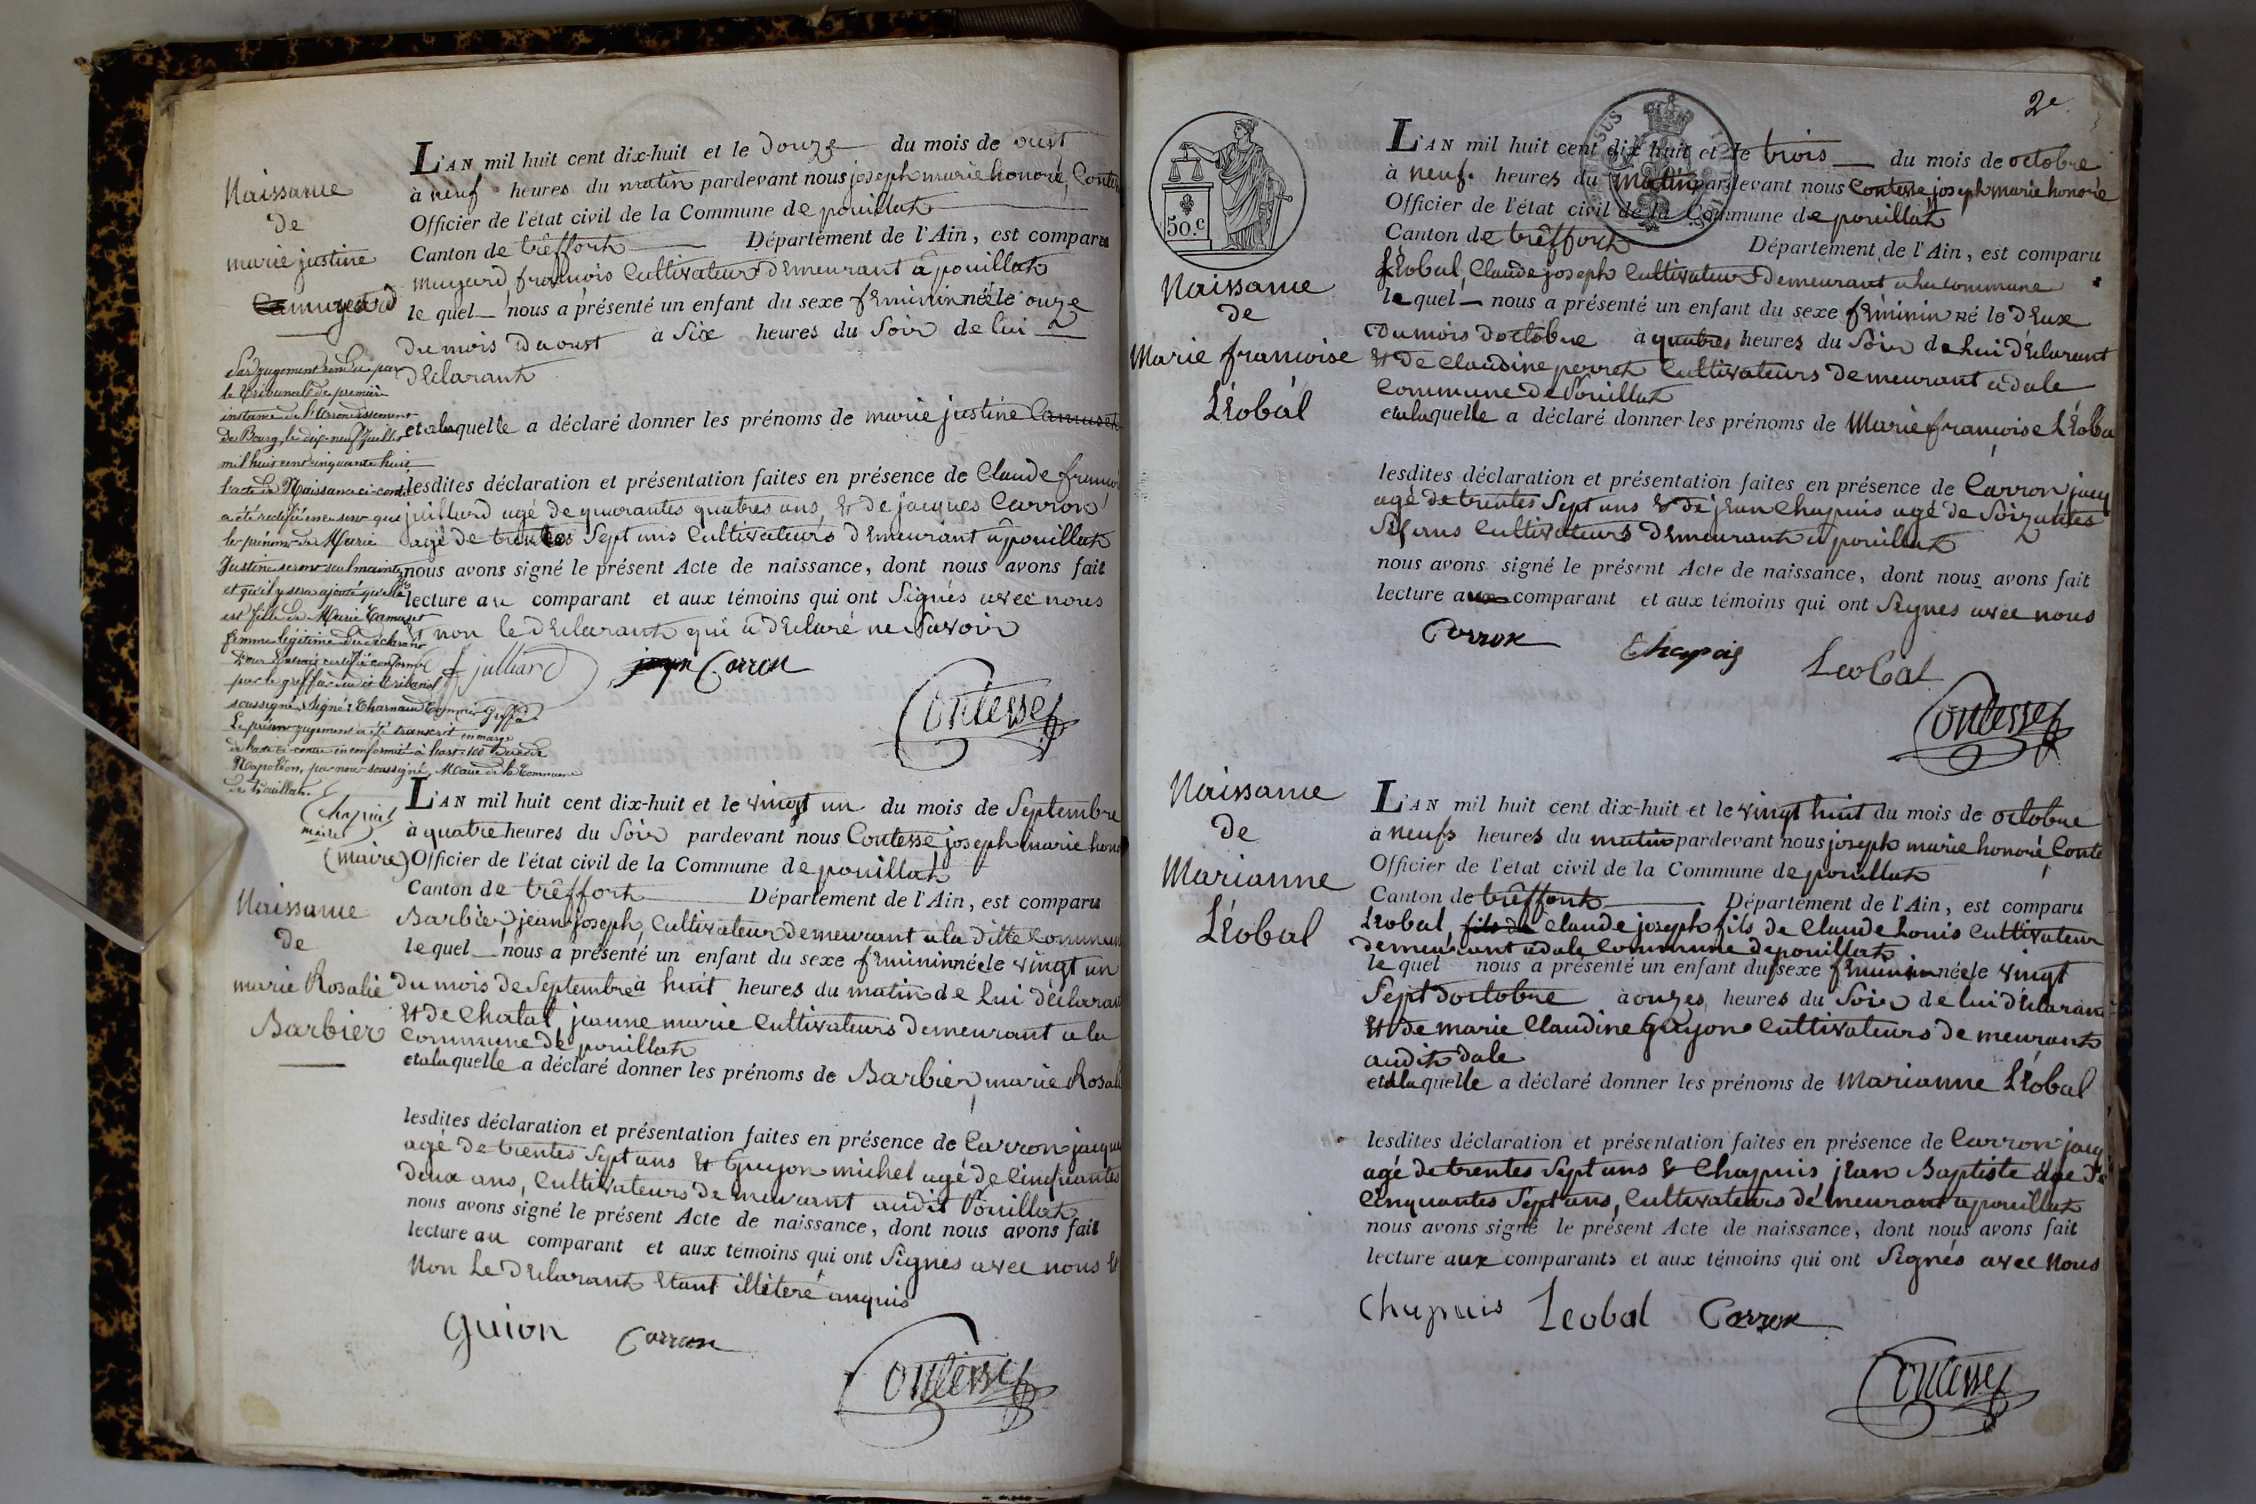 Naissance
de
marie justine
Camuyard
L'AN mil huit cent dix-huit et le douze du mois de oust
à neuf heures du matin pardevant nous joseph marie honoré, Conte
Officier de l'état civil de la Commune de pouillat
Canton de trêffort Département de l'Ain, est comparu
muyard, francois Cultivateur demeurant à pouillat
le quel nous a présenté un enfant du sexe féminin née le onze
du mois daoust à six heures du soir de lui
déclarant
et a laquelle a déclaré donner les prénoms de marie justine Camuset
lesdites déclaration et présentation faites en présence de Claude franco
juillard agé de quarantes quatres ans, et de jacques Carron
agé de trentes sept ans Cultivateurs demeurant à pouillat
nous avons signé le présent Acte de naissance, dont nous avons fait
lecture au comparant et aux témoins qui ont Signés avec nous
et non le déclarant qui a déclaré ne savoir
f julliard Carron
Contesse
Par jugement rendu par
le tribunal de première
instance de l'arrondissement
de Bourg, le dix-neuf Juillet
mil huit cent cinquante huit
l'acte de Naissance ci-contre
a été rectifié en ce sens que
les prénoms de Marie
Justine seront seul maintenus
et qu'il y sera ajouté qu'elle
est fille de Marie Camuset
femme légitime du déclarant
Pour Extrait certifié conforme
par le greffier du dit tribunal
soussigné, signé: Charnaud Commis Greffier
Le présent jugement a été transcrit en marge
de l'acte ci-contre en conformité à l'art. 101 du Code
Napoléon, par nous soussigné, Maire de la Commune
de Pouillat.
Chapuis
maire
(maire)
Naissance
de
marie Rosalie
Barbier
L'AN mil huit cent dix-huit et le vingt un du mois de Septembre
à quatre heures du Soir pardevant nous Contesse joseph marie hono
Officier de l'état civil de la Commune de pouillat
Canton de trêffort Département de l'Ain, est comparu
Barbier, jean joseph, Cultivateur demeurant a la ditte Commun
le quel nous a présenté un enfant du sexe féminin née le vingt un
du mois de Septembre à huit heures du matin de Lui déclaran
et de Chatat jeanne marie Cultivateurs demeurant a la
Commune de pouillat
et a laquelle a déclaré donner les prénoms de Barbier, marie Rosali
lesdites déclaration et présentation faites en présence de Carron jacque
agé de trentes sept ans et Guyon michel agé de Cinquantes
deux ans, Cultivateurs demeurant audit Pouillat
nous avons signé le présent Acte de naissance, dont nous avons fait
lecture au comparant et aux témoins qui ont Signés avec nous et
Non Le déclarant Etant illitéré anquis
guion Carron
Contesse
2e
50.c
Naissance
de
Marie francoise
Léobal
L'AN mil huit cent dix-huit et le trois du mois de octobre
à neuf heures du matin pardevant nous Contesse joseph marie honoré
Officier de l'état civil de la Commune de pouillat
Canton de trêffort Département de l'Ain, est comparu
Léobal, Claude joseph Cultivateur demeurant a la commune
le quel nous a présenté un enfant du sexe féminin né le deux
du mois doctobre à quatres heures du Soir de Lui déclarant
et de Claudine perret Cultivateurs demeurant a dale
Commune de Pouillat
et a laquelle a déclaré donner les prénoms de Marie francoise Léoba
lesdites déclaration et présentation faites en présence de Carron jacq
agé de trentes sept ans et de jean Chapuis agé de Soizantes
Sis ans Cultivateurs demeurant a pouillat
nous avons signé le présent Acte de naissance, dont nous avons fait
lecture aux comparant et aux témoins qui ont Signes avec nous
Carron Chapuis Leobal
Contesse
Naissance
de
Marianne
Léobal
L'AN mil huit cent dix-huit et le vingt huit du mois de octobre
à neufs heures du matin pardevant nous joseph marie honoré, Conte
Officier de l'état civil de la Commune de pouillat
Canton de trêffort Département de l'Ain, est comparu
Léobal, fils de Claude joseph fils de Claude Louis Cultivateur
demeurant a dale Commune de pouillat
le quel nous a présenté un enfant du sexe féminin née le vingt
Sept doctobre à onzes heures du Soir de lui déclaran
et de marie Claudine Guyon Cultivateurs demeurant
audit dale
et a laquelle a déclaré donner les prénoms de Marianne Léobal
lesdites déclaration et présentation faites en présence de Carron jacq
agé de trentes Sept ans et Chapuis jean Baptiste agé de
Cinquantes Sept ans, Cultivateurs demeurant a pouillat
nous avons signé le présent Acte de naissance, dont nous avons fait
lecture aux comparants et aux témoins qui ont Signés avec Nous
Chapuis Leobal Carron
Contesse